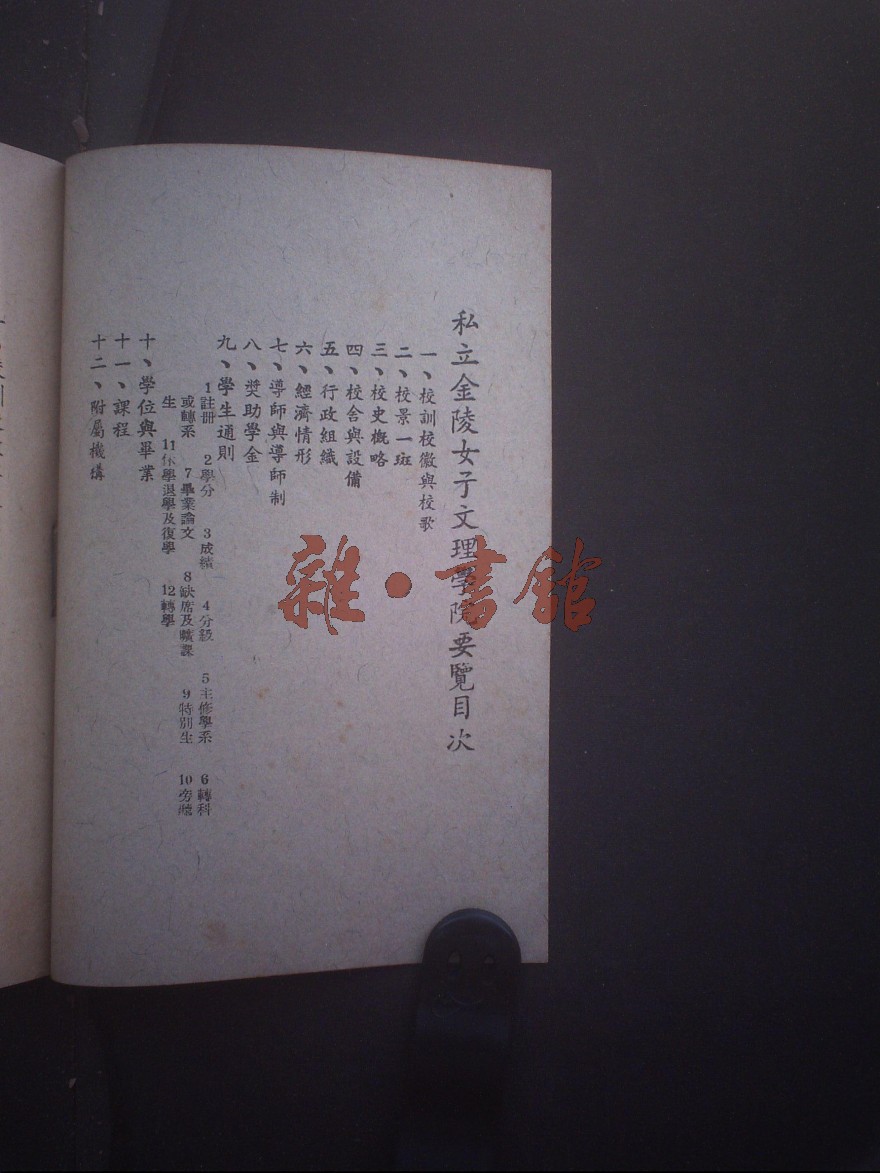 私立金陵女子文理學院要覽目次
一、校訓校徽與校歌
二、校景一斑
三、校史概略
四、校舍與設備
五、行政組織
六、經濟情形
七、導師與導師制
八、獎助學金
九、學生通則
1註册 2學分 3成績 4分級 5主修學系 6轉科
或轉系 7畢業論文 8缺席及曠課 9特別生 10旁聽
生 11休學退學及復學 12轉學
十、學位與畢業
十一、課程
十二、附屬機構
雜·書館